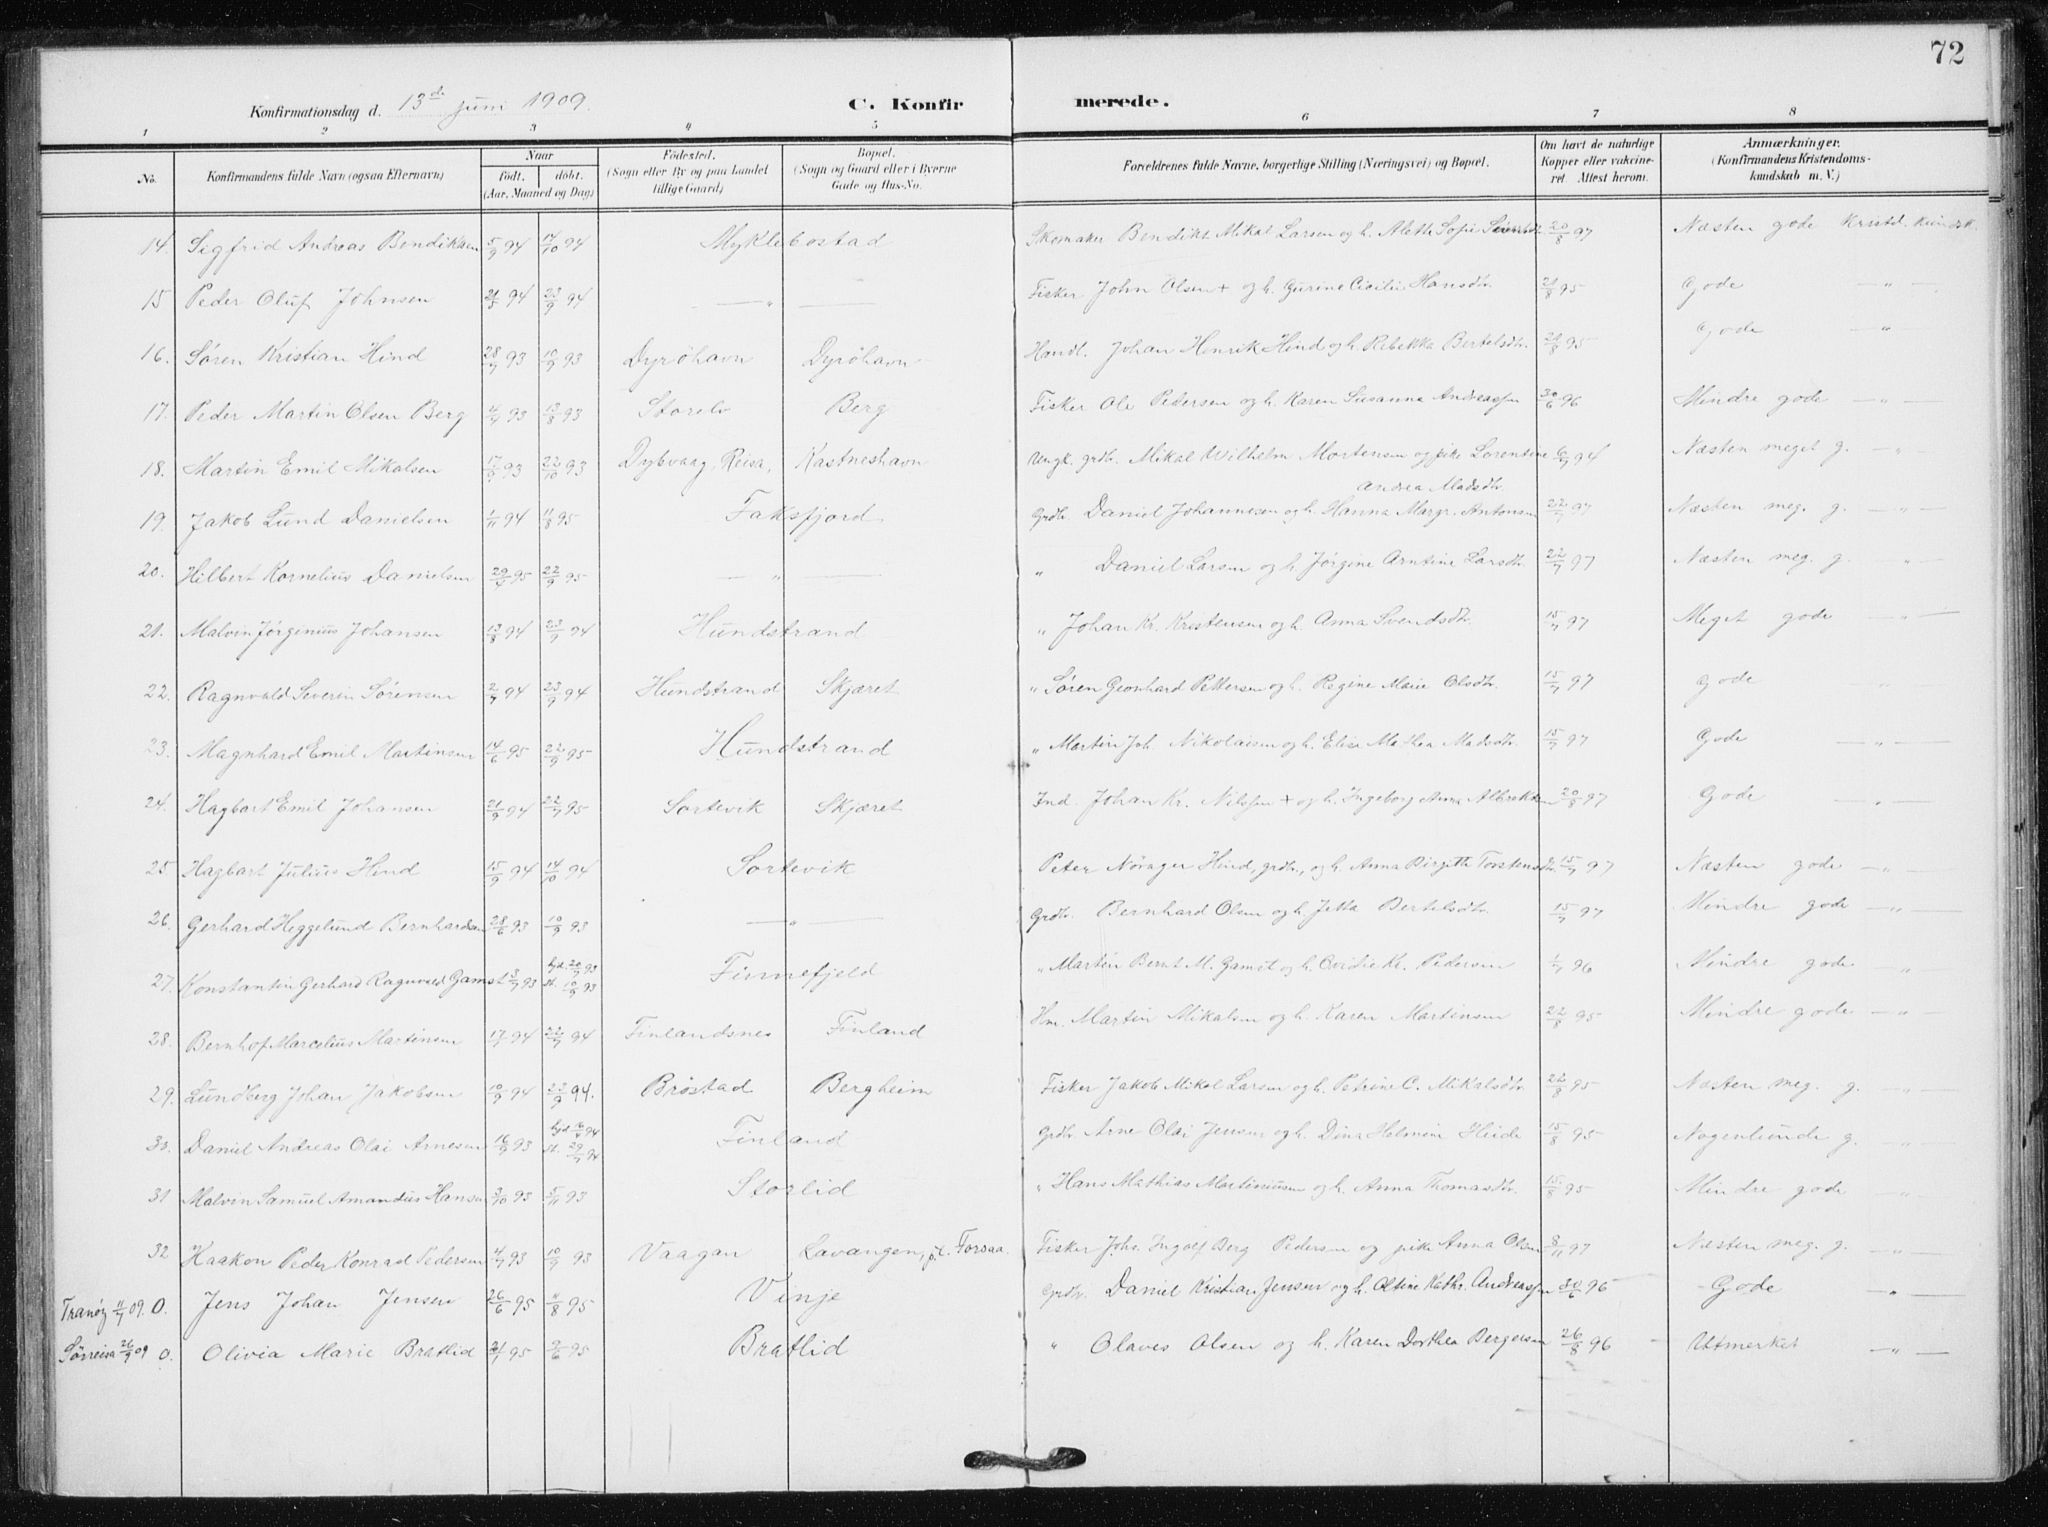 72
Konfirmationsdag d. 13de juni 1909. C. Konfirmerede.
1 2 3 4 5 6 7 8
No. Konfirmandens fulde Navn (ogsaa Efternavn) Naar født. døbt. (Aar, Maaned og Dag) Fødested. (Sogn eller By og paa Landet tillige Gaard) Bopæl. (Sogn og Gaard eller i Byerne Gade og Hus-No. Forældrenes fulde Navne, borgerlige Stilling (Næringsvei) og Bopæl. Om havt de naturlige Kopper eller vakcineret. Attest herom. Anmærkninger. (Konfirmandens Kristendomskundskab m. V.)
14. Sigfrid Andreas Bendiksen 5/9 94 14/10 94 Myklebostad Skomaker Bendikt Mikal Larsen og h. Aleth Sofie 20/8 97 Næsten gode Kristd. kundsk.
15 Peder Oluf Johnsen 94 23/9 94 — " — Fisker John Olsen + og h. Gurine Cecilie Hansdtr. 21/8 95 Gode — " —
16. Søren Kristian Hind 28/7 93 10/9 93 Dyröhavn Dyröhavn Handl. Johan Henrik Hind og h. Rebekka Bertelsdtr. 21/8 95 Gode — " —
17. Peder Martin Olsen Berg 4/7 93 13/8 93 Storelv Berg Fisker Ole Pedersen og h. Karen Susanna Andreassen 30/6 96 Mindre gode — " —
18. Martin Emil Mikalsen 17/9 93 22/10 93 Dybvaag, Reisa, Kastneshavn Ungk. grdbr. Mikal Wilhelm Mortensen og pike Lorentine Andrea Madsdtr. 6/7 94 Næsten meget g. — " —
19. Jakob Lund Danielsen 1/11 94 11/8 95 Faksfjord Grdbr. Daniel Johannesen og h. Hanna Margr. Antonsen 22/7 97 Næsten meg. g. — " —
20. Hilbert Kornelius Danielsen 29/4 95 22/9 95 — " — " Daniel Larsen og h. Jörgine Arntine Larsdtr. 22/7 97 Næsten meg. g. " —
21. Malvin Jörgenius Johansen 13/8 94 23/9 94 Hundstrand " Johan Kr. Kristensen og h. Anna Svendsdtr. 15/7 97 Meget gode — " —
22. Ragnvald Severin Sörensen 2/7 94 23/9 94 Hundstrand Skjæret " Sören Geonhard Pettersen og h. Regine Marie Olsdtr. 15/7 97 Gode "
23. Magnhard Emil Martinsen 14/6 95 22/9 95 Hundstrand " Martin Joh. Nikolaisen og h. Elisa Mathea Madsdtr. 15/7 97 Gode — " —
24. Hagbart Emil Johansen 21/9 94 22/7 95 Sortevik Skjæret Ind. Johan Kr. Nilssen + og h. Ingeborg Anna Albrektsen 20/8 97 Gode — " —
25 Hagbart Julius Hind 15/9 94 14/10 94 Sortevik Peter Nörager Hind, grdbr., og h. Anna Birgitte Torstensdtr. 15/7 97 Næsten gode — " —
26. Gerhard Heggelund Bernhardsen 28/6 93 10/9 93 — " — Grdbr. Bernhard Olsen og h. Jetta Bertelsdtr. 15/7 97 Mindre gode — " —
27. Konstantin Gerhard Ragnvald Gamst 3/7 93 hjd. 20/7 93 st. 10/9 93 Finnefjeld " Martin Bernt M. Gamst og h. Ovidie Kr. Pedersen 1/7 96 Mindre gode — "
28. Bernhof Marcelius Martinsen 17/7 94 22/7 94 Finlandsnes Finland Hm. Martin Mikalsen og h. Karen Martinsen 22/8 95 Mindre gode — " —
29. Lundberg Johan Jakobsen 10/9 94 23/9 94. Bröstad Bergheim Fisker Jakob Mikal Larsen og h. Petrine C. Mikalsdtr. 22/8 95 Næsten meg. g. " —
30. Daniel Andreas Olai Arnesen 93 hjd. 94 st. 29/7 94 Finland Grdbr. Arne Olai Jensen og h. Dina Helmine Heide 15/8 95 Nogenlunde g. " —
31. Malvin Samuel Amandus Hansen 3/10 93 5/11 93 Storlid " Hans Mathias Martinusen og h. Anna Thomasdtr. 15/8 95 Mindre gode — " —
32 Haakon Peder Konrad Pedersen 4/7 93 10/9 93 Vaagan Lavangen, p.t. Forsaa. Fisker Johs. Ingolf Berg Pedersen og pike Anna Olsen 8/11 97 Næsten meg. g. " —
Tranöy 11/7 09. O. Jens Johan Jensen 26/6 95 11/8 95 Vinje Grdbr. Daniel Kristian Jensen og h. Oltine Kathr. Andreassen 30/6 96 Gode " —
Sörreisa 26/9 09 O. Olivia Marie Bratlid 95 2/6 95 Bratlid " Olaves Olsen og h. Karen Dorthea Bergersen 26/8 96 Utmerket — " —